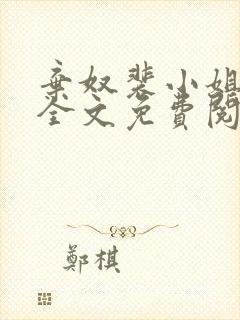 棄奴裴小姐
全文免費閱
鄭棋